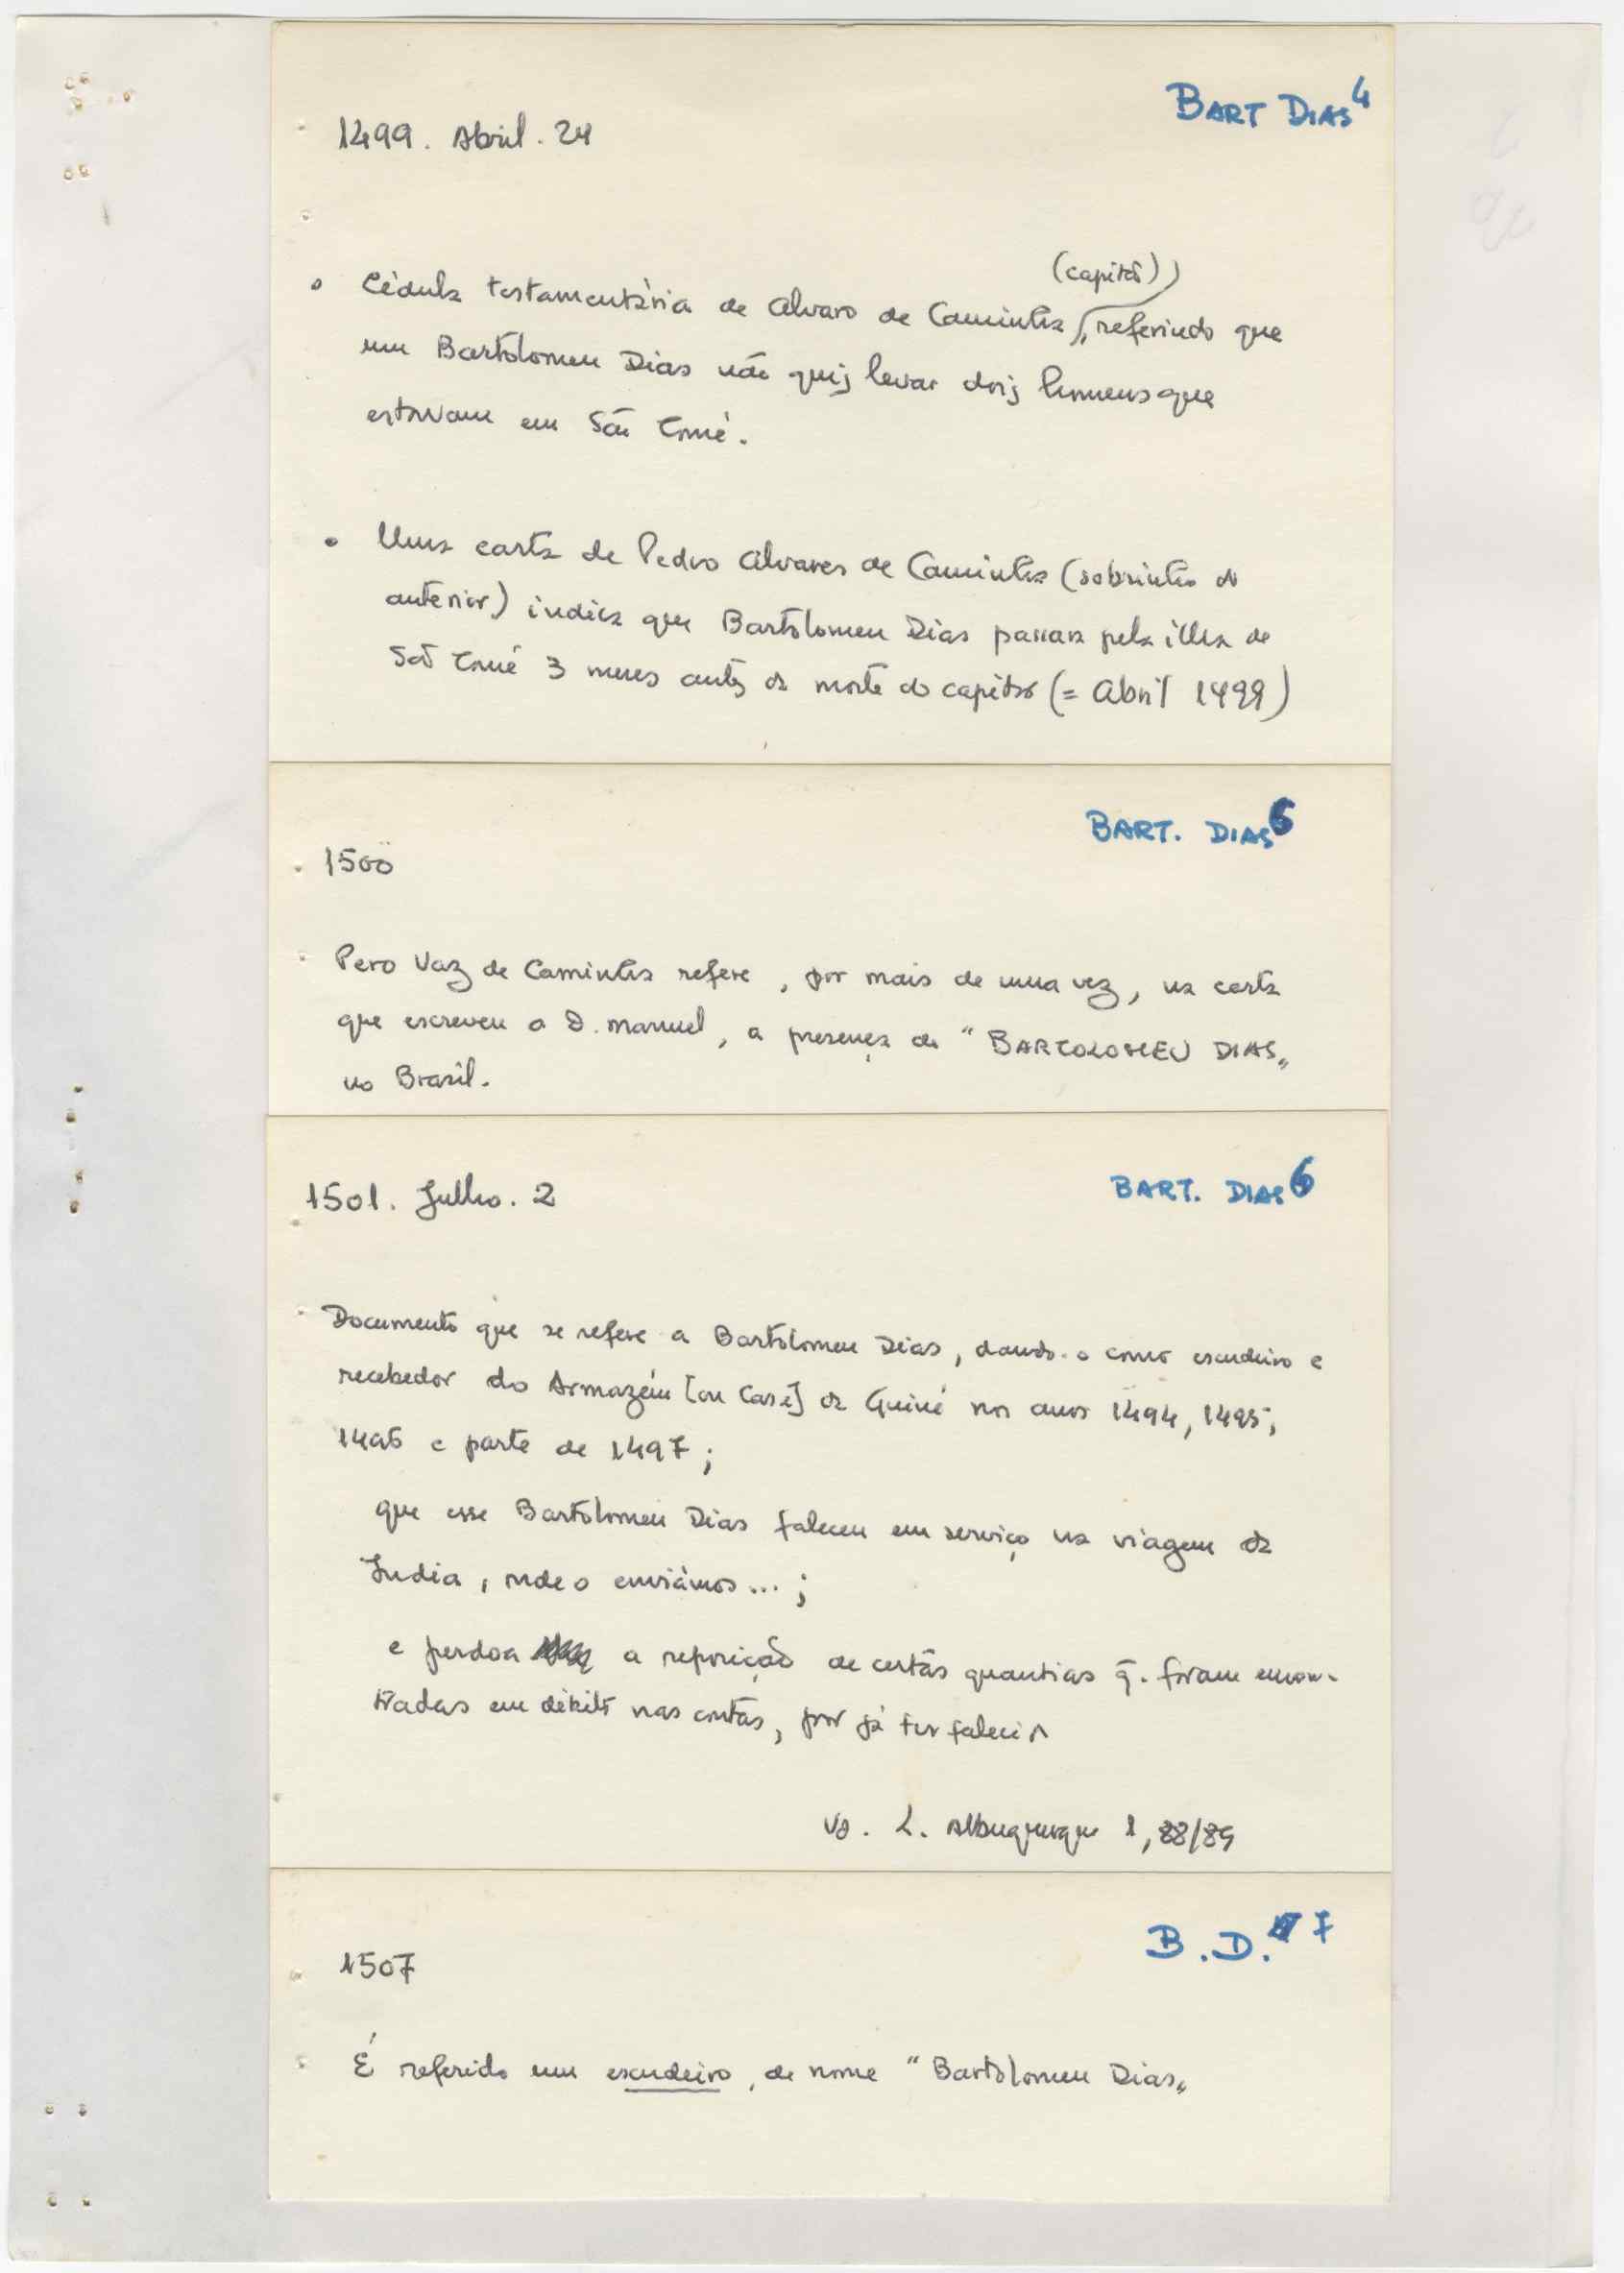 BART DIAS 4
1499. Abril. 24
(capitão)
Cédula testamentária de Alvaro de Caminha, referindo que
um Bartolomeu Dias não quis levar dois homens que
estavam em São Tomé.
Uma carta de Pedro Alvares de Caminha (sobrinho do
anterior) indica que Bartolomeu Dias passara pela ilha de
São Tomé 3 meses antes da morte do capitão (= Abril 1499)
BART. DIAS
1500
Pero Vaz de Caminha refere, por mais de uma vez, na carta
que escreveu a D. Manuel, a presença de "BARTOLOMEU DIAS„
no Brasil.
BART. DIAS 6
1501. Julho. 2
Documento que se refere a Bartolomeu Dias, dando-o como escudeiro e
recebedor do Armazém [ou Casa] da Guiné nos anos 1494, 1495,
1496 e parte de 1497;
que esse Bartolomeu Dias faleceu em serviço na viagem da
India, onde o enviámos...;
e perdoa a reposição de certas quantias q. foram encon-
tradas em débito nas contas, por já ter falecido
L. Albuquerque 1, 88/89
B.D. 7
1507
É referido um escudeiro, de nome "Bartolomeu Dias„